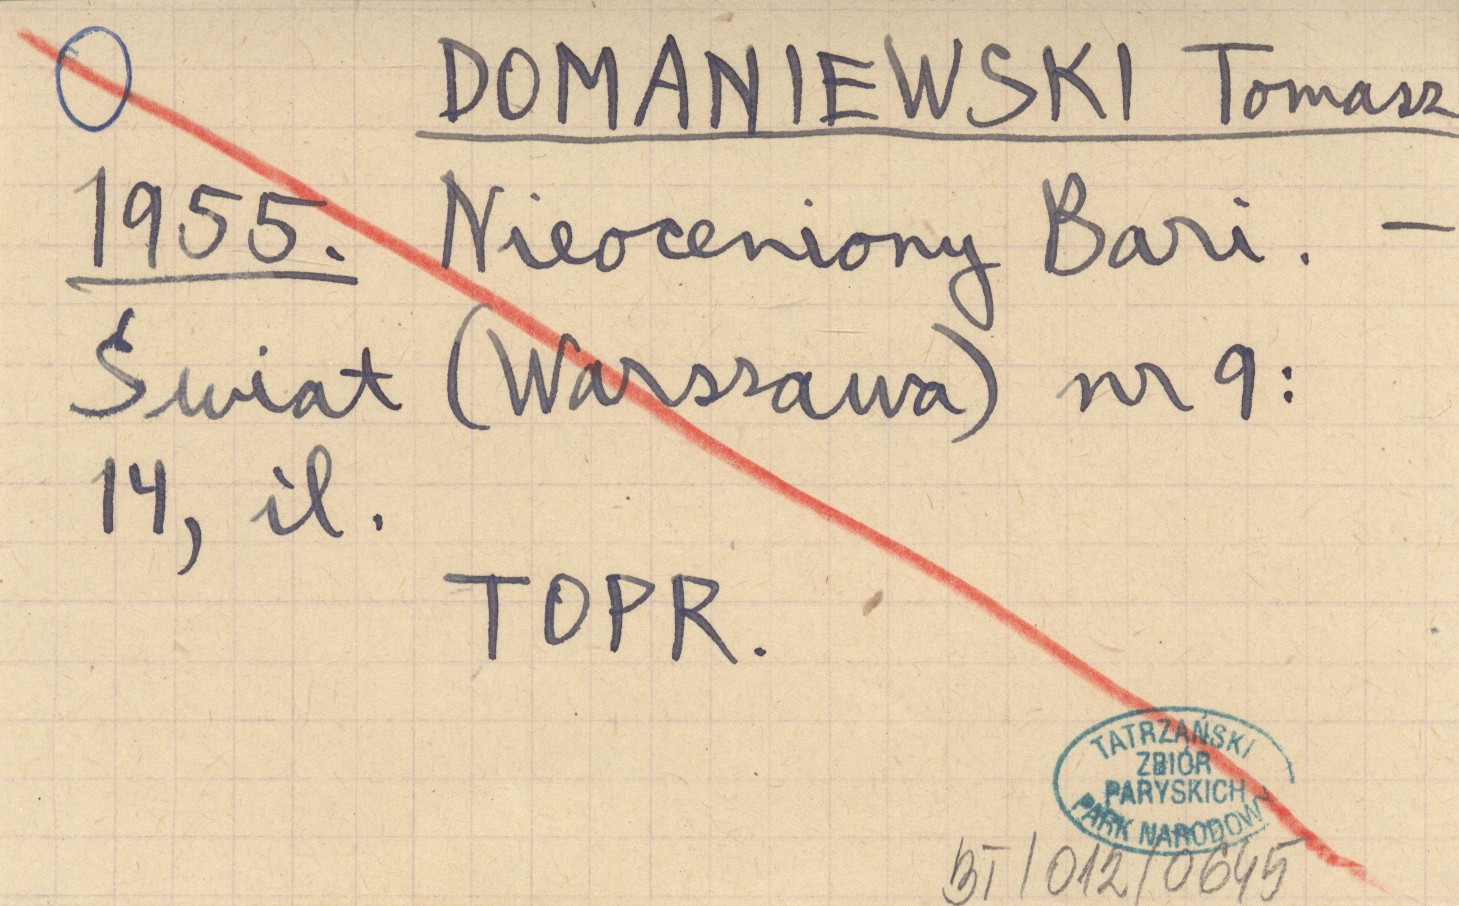 DOMANIEWSKI Tomasz
1955. Nieoceniony Bari. —
Świat (Warszawa) nr 9:
14, il.
TOPR.
TATRZAŃSKI
ZBIÓR
PARYSKICH
PARK NARODOWY
BT/012/0645